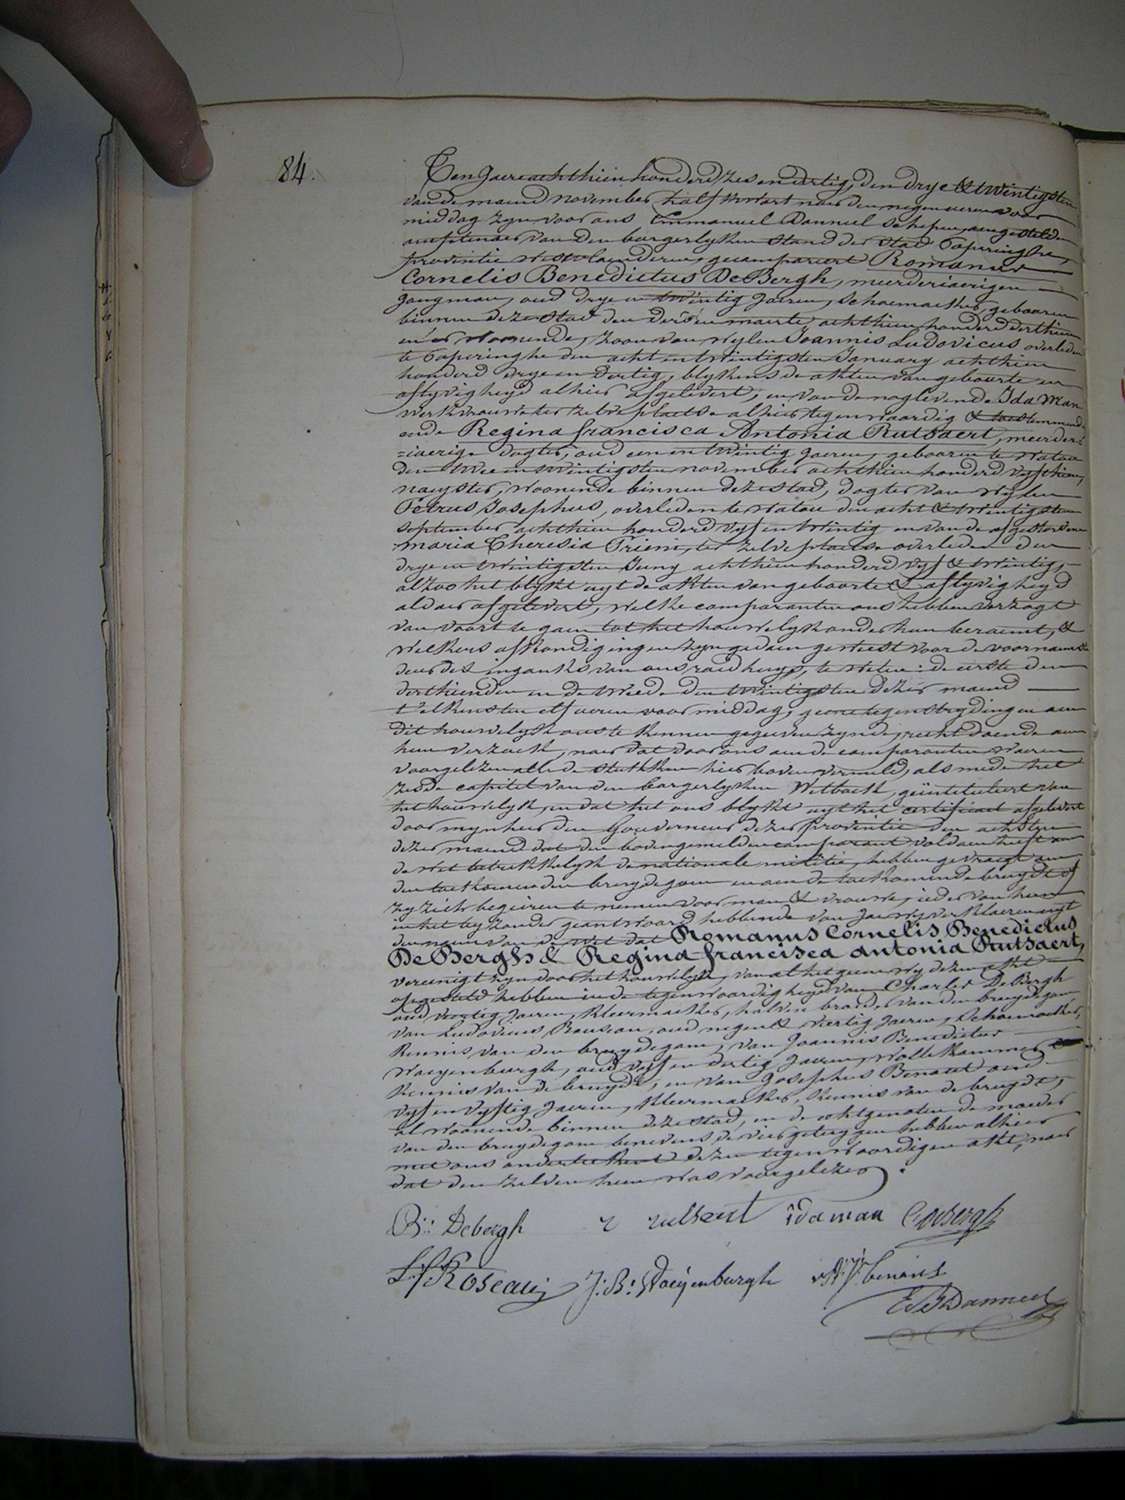 84.
Ten Jaere achthien honderd zes en dertig, den drye & twintigsten
van de maend november half voor naer den negen ueren voor
middag zyn voor ons Emmanuel Danneel schepen, aengestelden
amptenaer van den burgerlyken stand der stad Poperinghe,
provintie westvlaenderen, gecompareert Romanus
Cornelis Benedictus De Bergh, meerderiaerigen
Jongman, oud drye en twintig Jaeren, schoemaeker, gebooren
binnen deze stad den derden maerte achthien honderd derthien
en er woonende, zoon van wylen Joannis Ludovicus overleden
te Poperinghe den acht en twintigsten January achthien
honderd drye en dertig, blykens de akten van geboorte en
aflyvigheyd alhier afgelevert, en van de naglevende Ida Man
werkvrouw ter zelve plaetse alhier tegenwoordig & toestemmende
ende Regina francisca Antonia Rutsaert, meerder=
=iaerige dogter, oud een en twintig Jaeren, gebooren te watou
den twee en twintigsten november achthien honderd vyfthien,
naeyster, woonende binnen deze stad, dogter van wylen
Petrus Josephus, overleden te Watou den acht & twintigsten
september achthien honderd vyf en twintig en van de afgestorvene
maria Theresia Priem, ter zelve plaetse overleden den
drye en twintigsten Juny achthien honderd vyf & twintig,
alzoo het blykt uyt de akten van geboorte & aflyvigheyd
aldaer afgelevert, welke comparanten ons hebben verzogt
van voort te gaen tot het houwelyk onder hun beraemt, &
welkers afkondigingen zyn gedaen geweest voor de voornaemste
deur des ingangs van ons raedhuys, te weten: de eerste den
derthienden en de tweede den twintigsten dezer maend
t'elkensten elf ueren voormiddag, geene tegenstrydingen aen
dit houwelyk ons te kennen gegeven zynde, recht doende aen
hun verzoek, naer dat door ons aen de comparanten waeren
voorgelezen alle de stukken hier boven vermeld, als mede het
zesde capitel van den burgerlyken Wetboek, geintituleert van
het houwelyk, en dat het ons blykt uyt het certificaet afgelevert
door mynheer den Gouverneur dezer provintie den achtsten
dezer maend dat den bovengemelden comparant voldaen heeft aen
de wet betrekkelyk de nationale militie, hebben gevraegt aen
den toekomenden bruydegom en aen de toekomende bruydt of
zy zich begeiren te nemen voor man & vrouwe, ieder van hun
in het byzonder geantwoord hebbende van Ja, wy verklaeren uyt
den naem van de Wet dat Romanus Cornelis Benedictus
De Bergh & Regina francisca Antonia Rutsaert,
vereenigt zyn door het houwelyk, van al het geen wy dezen akt
opgesteld hebben in de tegenwoordigheyd van Charles De Bergh
oud veertig Jaeren, kleermaeker, halven broeder van den bruydegom,
van Ludovicus Rouseau, oud negen & veertig Jaeren, schoemaeker,
kennis van den bruydegom, van Joannis Benedictus
Woeyenburgh, oud vyf en dertig Jaeren, wollekammer
kennis van de bruydt, en van Josephus Benoot oud
vyf en vyftig Jaeren, kleermaeker, kennis van de bruydt,
al woonende binnen deze stad, en de echtgenoten de moeder
van den bruydegom benevens de vier getuygen hebben alhier
met ons onderteekent dezen tegenwoordigen akt, naer
dat den zelven hun was voorgelezen.
Bn: Debergh r rutsaert ida man C debergh
L:J Roseauy J: Bt Woeyenburgh J: benoit
E Danneel